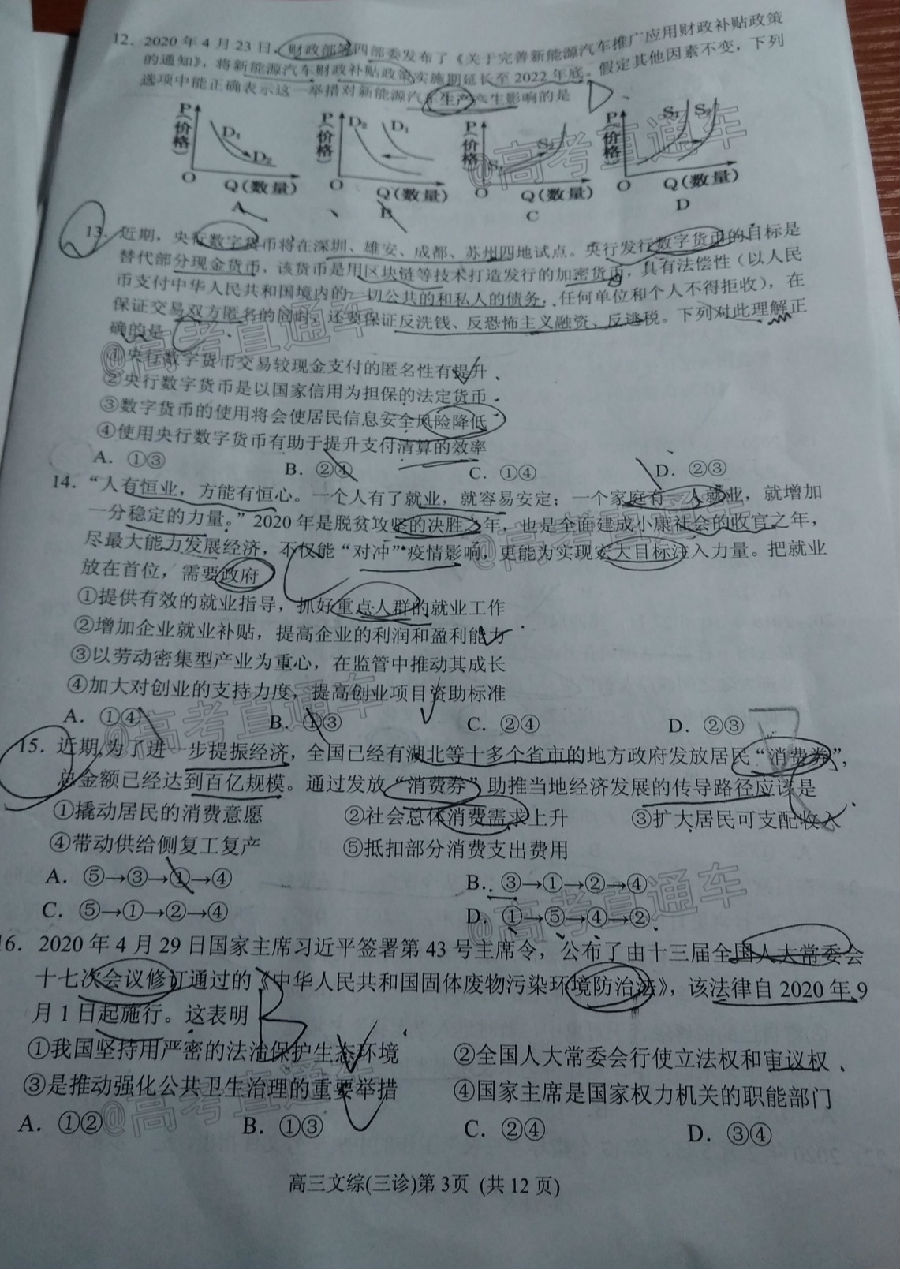 12．2020年4月23日，财政部等四部委发布了《关于完善新能源汽车推广应用财政补贴政策
的通知》，将新能源汽车财政补贴政策实施期延长至2022年底。假定其他因素不变，下列
选项中能正确表示这一举措对新能源汽车生产产生影响的是
P(价格) D₁ D₂ O Q(数量) A
P(价格) D₂ D₁ O Q(数量) B
P(价格) S₁ S₂ O Q(数量) C
P(价格) S₁ S₂ O Q(数量) D
13．近期，央行数字货币将在深圳、雄安、成都、苏州四地试点。央行发行数字货币的目标是
替代部分现金货币，该货币是用区块链等技术打造发行的加密货币，具有法偿性（以人民
币支付中华人民共和国境内的一切公共的和私人的债务，任何单位和个人不得拒收），在
保证交易双方匿名的同时，还要保证反洗钱、反恐怖主义融资、反逃税。下列对此理解正
确的是
①央行数字货币交易较现金支付的匿名性有提升
②央行数字货币是以国家信用为担保的法定货币
③数字货币的使用将会使居民信息安全风险降低
④使用央行数字货币有助于提升支付清算的效率
A．①③ B．②④ C．①④ D．②③
14．“人有恒业，方能有恒心。一个人有了就业，就容易安定；一个家庭有一人就业，就增加
一分稳定的力量。”2020年是脱贫攻坚的决胜之年，也是全面建成小康社会的收官之年，
尽最大能力发展经济，不仅能“对冲”疫情影响，更能为实现宏大目标注入力量。把就业
放在首位，需要政府
①提供有效的就业指导，抓好重点人群的就业工作
②增加企业就业补贴，提高企业的利润和盈利能力
③以劳动密集型产业为重心，在监管中推动其成长
④加大对创业的支持力度，提高创业项目资助标准
A．①④ B．①③ C．②④ D．②③
15．近期,为了进一步提振经济，全国已经有湖北等十多个省市的地方政府发放居民“消费券”，
总金额已经达到百亿规模。通过发放“消费券”助推当地经济发展的传导路径应该是
①撬动居民的消费意愿 ②社会总体消费需求上升 ③扩大居民可支配收入
④带动供给侧复工复产 ⑤抵扣部分消费支出费用
A．⑤→③→①→④ B．③→①→②→④
C．⑤→①→②→④ D．①→⑤→④→②
16．2020年4月29日国家主席习近平签署第43号主席令，公布了由十三届全国人大常委会
十七次会议修订通过的《中华人民共和国固体废物污染环境防治法》，该法律自2020年9
月1日起施行。这表明
①我国坚持用严密的法治保护生态环境 ②全国人大常委会行使立法权和审议权
③是推动强化公共卫生治理的重要举措 ④国家主席是国家权力机关的职能部门
A．①② B．①③ C．②④ D．③④
高三文综(三诊)第3页（共12页）
@高考直通车
@高考直通车
@高考直通车
@高考直通车
@高考直通车
@高考直通车